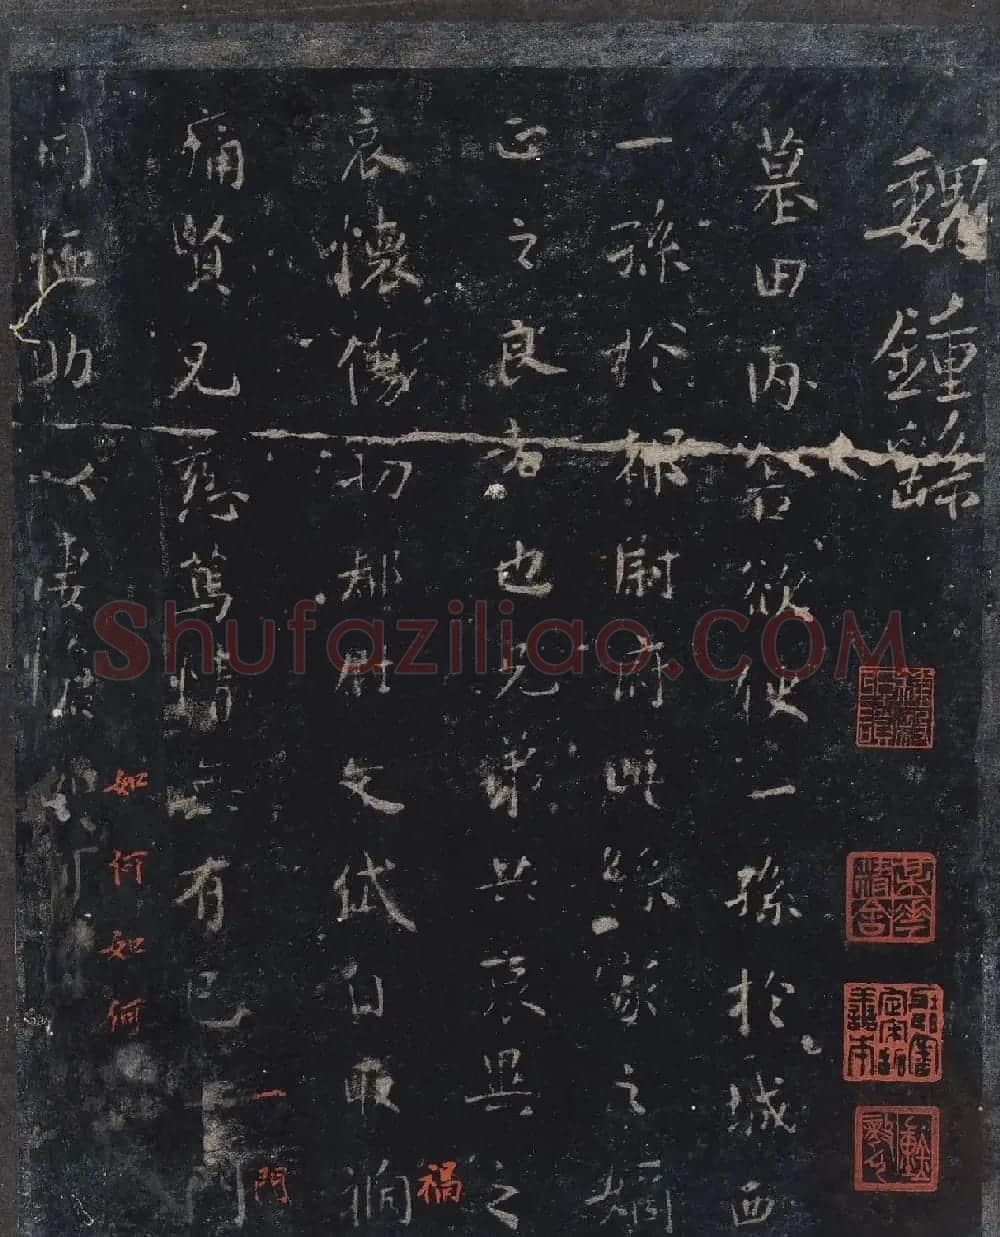 魏鍾繇
墓田丙舍欲使一孫於城西
一孫於都尉府此繇家之嫡
正之良者也兄弟共哀異之
哀懷傷切都尉文岱自取禍
禍
痛賢兄慈篤情無有已一門
一門
同恤助以悽愴如何
如何如何
Shufaziliao.COM